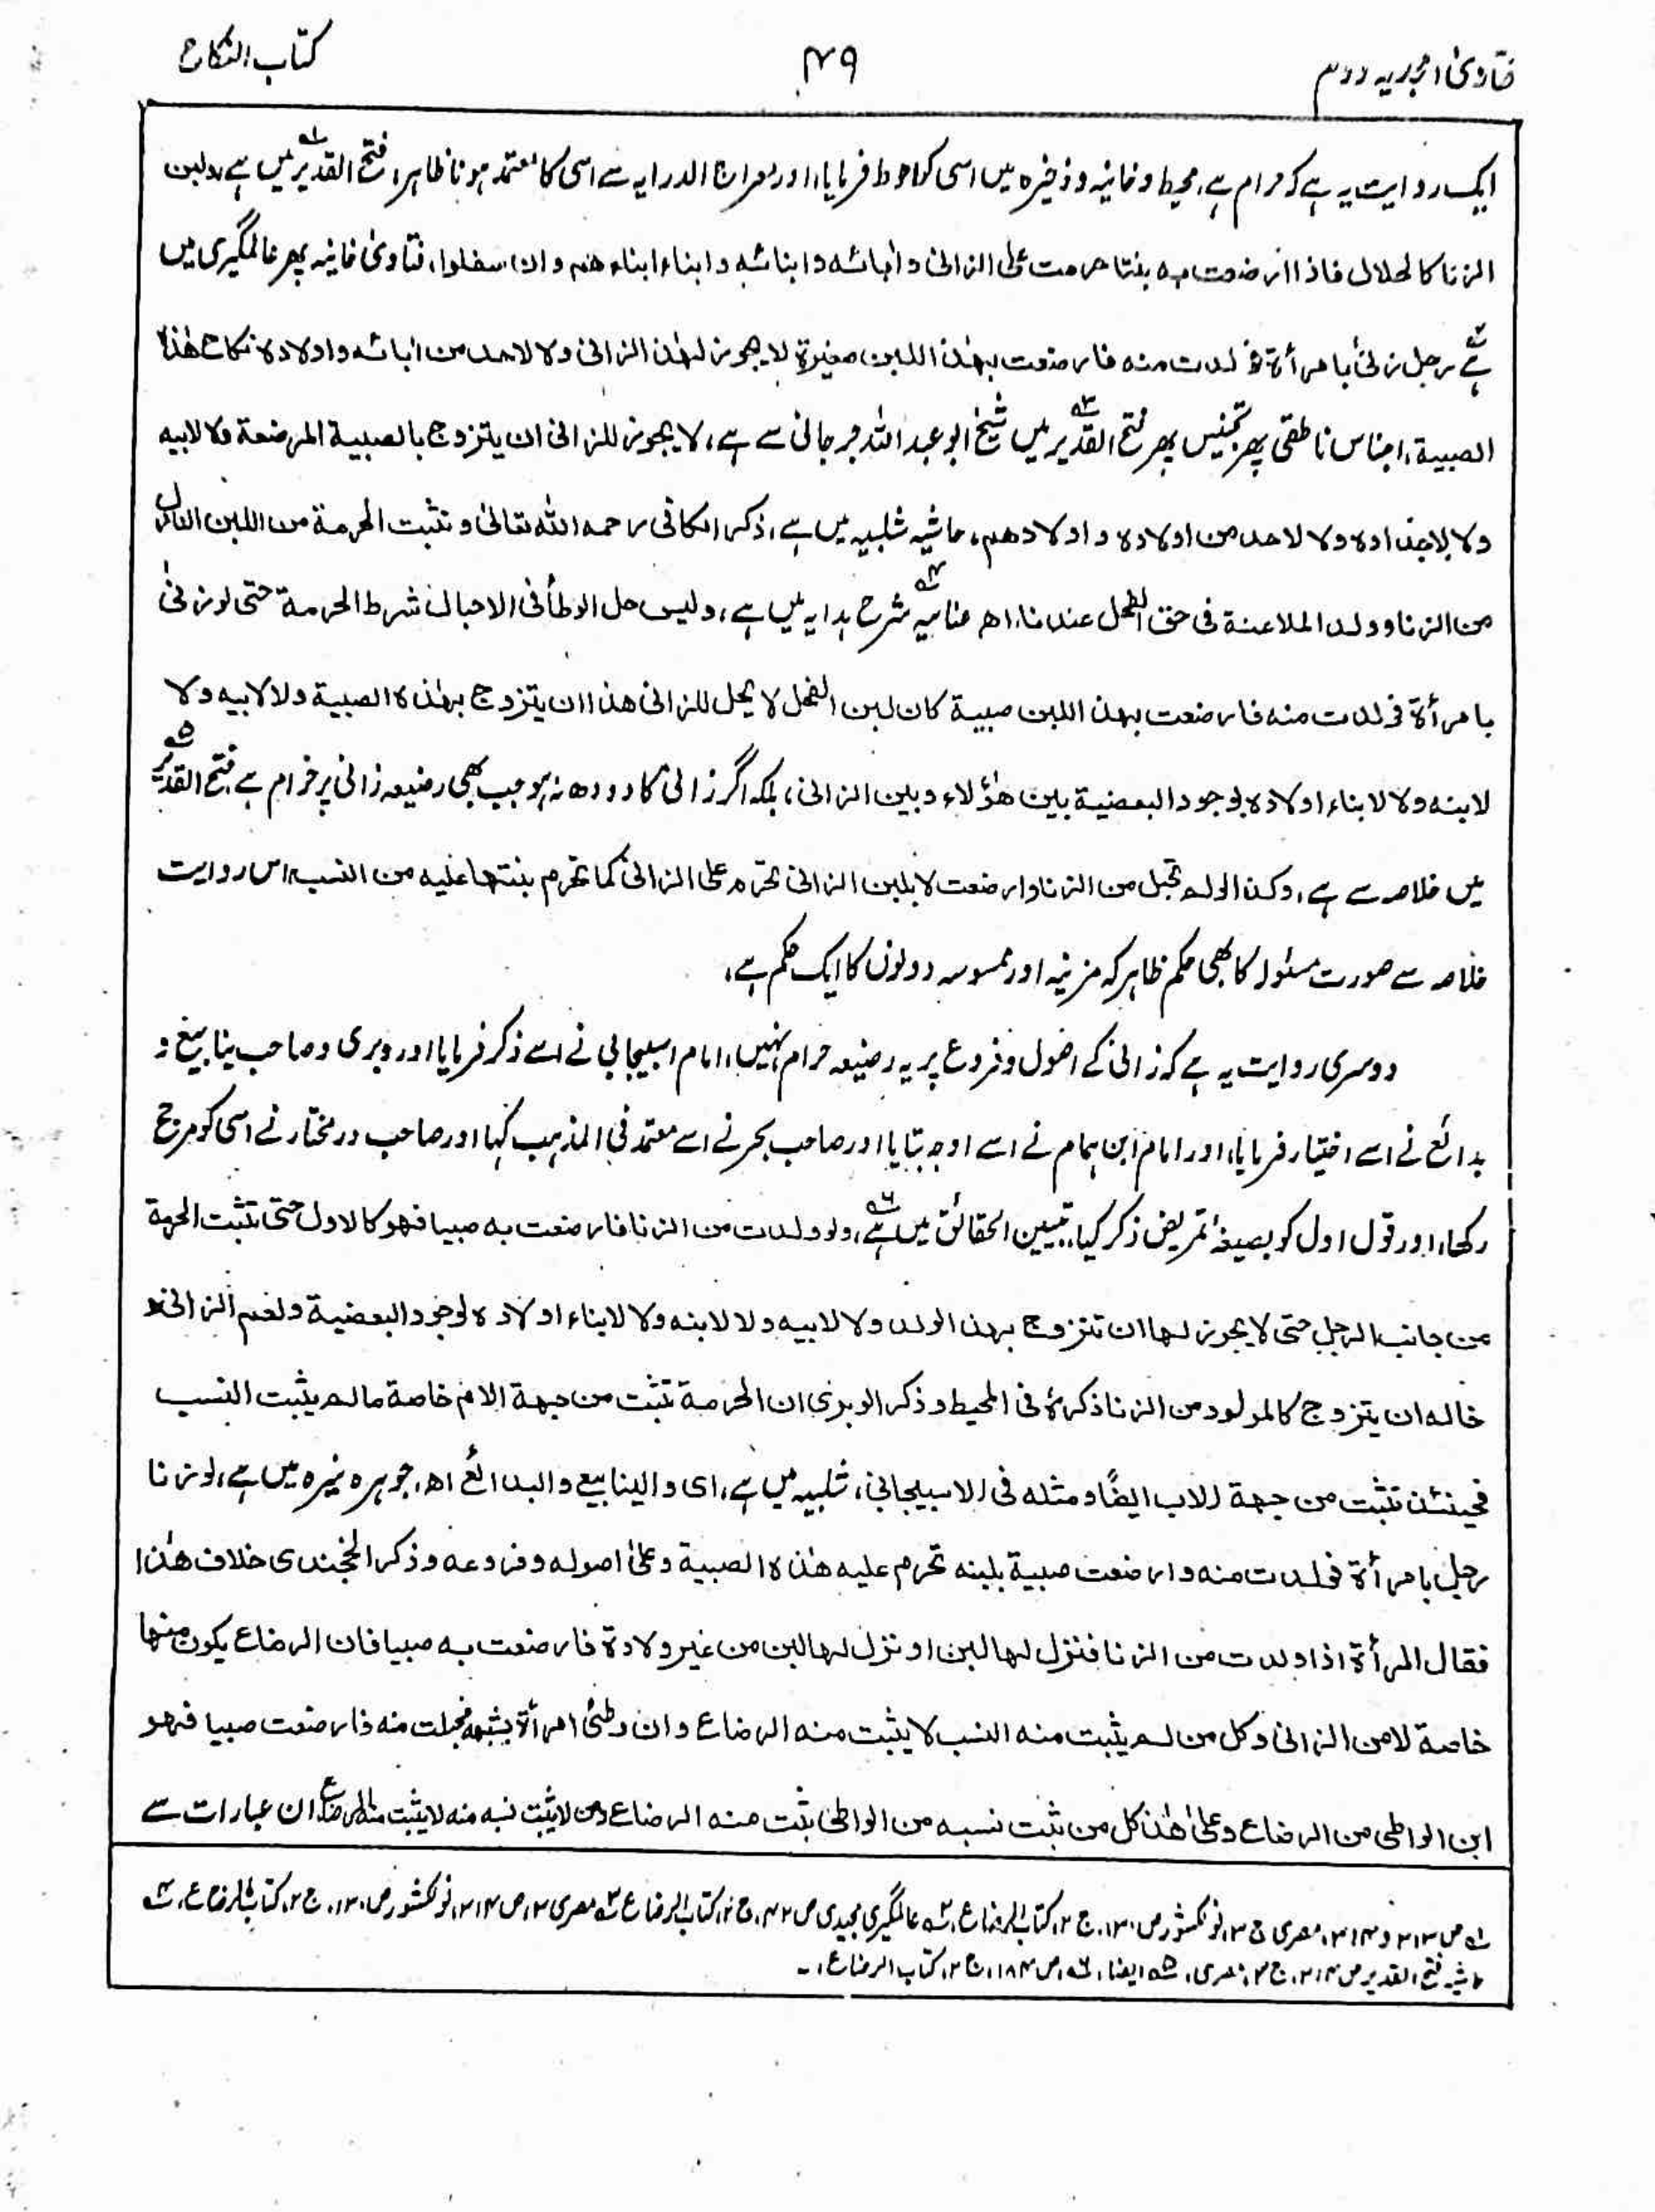 فتاویٰ امجدیہ دوم
۴۹
کتاب النکاح
ایک روایت یہ ہے کہ حرام ہے، محیط و خانیہ و ذخیرہ میں اسی کو احوط فرمایا، اور معراج الدرایہ سے اسی کا معتمد ہونا ظاہر، فتح القدیر۱ میں ہے، ولبن
الزنا کالحلال فاذا ارضعت بہ بنتا حرمت علی الزانی واٰبائہ وابنائہ وابناء ابناءھم وان سفلوا، فتاویٰ خانیہ پھر عالمگیری میں
ہے۲ رجل زنیٰ بامرأۃ فولدت منہ فارضعت بھٰذا اللبن صغیرۃ لایجوز لھٰذا الزانی ولا لاحد من اٰبائہ واولادہ نکاح ھٰذہ
الصبیۃ، اجناس ناطفی پھر تجنیس پھر فتح القدیر۳ میں شیخ ابو عبد اللہ جرجانی سے ہے، لایجوز للزانی ان یتزوج بالصبیۃ المرضعۃ ولا لابیہ
ولا لاجدادہ ولا لاحد من اولادہ و اولادھم، حاشیہ شلبیہ میں ہے، ذکر الکافی رحمہ اللہ تعالیٰ و تثبت الحرمۃ من اللبن النازل
من الزنا وولد الملاعنۃ فی حق الفحل عندنا، اھ عنایہ۴ شرح ہدایہ میں ہے، ولیس حل الوطأ فی الاحبال شرط الحرمۃ حتی لو زنیٰ
بامرأۃ فولدت منہ فارضعت بھذا اللبن صبیۃ کان لبن الفحل لا یحل للزانی ھذا ان یتزوج بھٰذہ الصبیۃ ولا لابیہ ولا
لابنہ ولا لابناء اولادہ لوجود البعضیۃ بین ھؤلاء وبین الزانی، بلکہ اگر زانی کا دودھ نہ ہو جب بھی رضیعہ زانی پر حرام ہے فتح القدیر۵
میں خلاصہ سے ہے، وکذا لو لم تحبل من الزنا وارضعت لا بلبن الزانی تحرم علی الزانی کما تحرم بنتھا علیہ من النسب، اس روایت
خلاصہ سے صورت مسئولہ کا بھی حکم ظاہر کہ مزنیہ اور ممسوسہ دونوں کا ایک حکم ہے،
دوسری روایت یہ ہے کہ زانی کے اصول و فروع پر یہ رضیعہ حرام نہیں، امام اسبیجابی نے اسے ذکر فرمایا اور وبری و صاحب ینابیع و
بدائع نے اسے اختیار فرمایا، اور امام ابن ہمام نے اسے اوجہ بتایا اور صاحب بحر نے اسے معتمد فی المذہب کہا اور صاحب درمختار نے اسی کو مرجح
رکھا، اور قول اول کو بصیغہ تمریض ذکر کیا، تبیین الحقائق میں ہے۶، ولو ولدت من الزنا فارضعت بہ صبیا فھو کالاول حتی تثبت الحرمۃ
من جانب الرجل حتی لا یجوز لھا ان تتزوج بھذا الولد ولا لابیہ ولا لابنہ ولا لابناء اولادہ لوجود البعضیۃ ولعم الزانی و
خالہ ان یتزوج کالمولود من الزنا ذکرہٗ فی المحیط وذکر الوبری ان الحرمۃ تثبت من جہۃ الام خاصۃ مالم یثبت النسب
فحینئذ تثبت من جہۃ الاب ایضًا ومثلہ فی الاسبیجابی، شلبیہ میں ہے، ای والینابیع والبدائع اھ، جوہرہ نیرہ میں ہے، لو زنا
رجل بامرأۃ فولدت منہ وارضعت صبیۃ بلبنہ تحرم علیہ ھٰذہ الصبیۃ وعلیٰ اصولہ وفروعہ وذکر الخجندی خلاف ھٰذا
فقال المرأۃ اذا ولدت من الزنا فنزل لھا لبن او نزل لھا لبن من غیر ولادۃ فارضعت بہ صبیا فان الرضاع یکون منھا
خاصۃ لا من الزانی وکل من لم یثبت منہ النسب لا یثبت منہ الرضاع وان وطیٔ امرأۃ بشبھۃ فحبلت منہ فارضعت صبیا فھو
ابن الواطی من الرضاع وعلیٰ ھٰذا کل من ثبت نسبہ من الواطی ثبت منہ الرضاع ومن لا یثبت نسبہ منہ لا یثبت منہ الرضاع ان عبارات سے
۱ ص ۳۱۳ و ۳۱۴، مصری ج ۳، نولکشور ص ۱۳۰، ج ۲، کتاب الرضاع، ۲ عالمگیری مجیدی ص ۴۲، ج ۲، کتاب الرضاع ۳ مصری ۳، ص ۳۱۴، نولکشور ص ۱۳۰، ج ۲، کتاب الرضاع، ۴
حاشیہ فتح القدیر ص ۳۱۴، ج ۳، مصری، ۵ ایضا، ۶ ص ۱۸۴، ج ۲، کتاب الرضاع، ۔